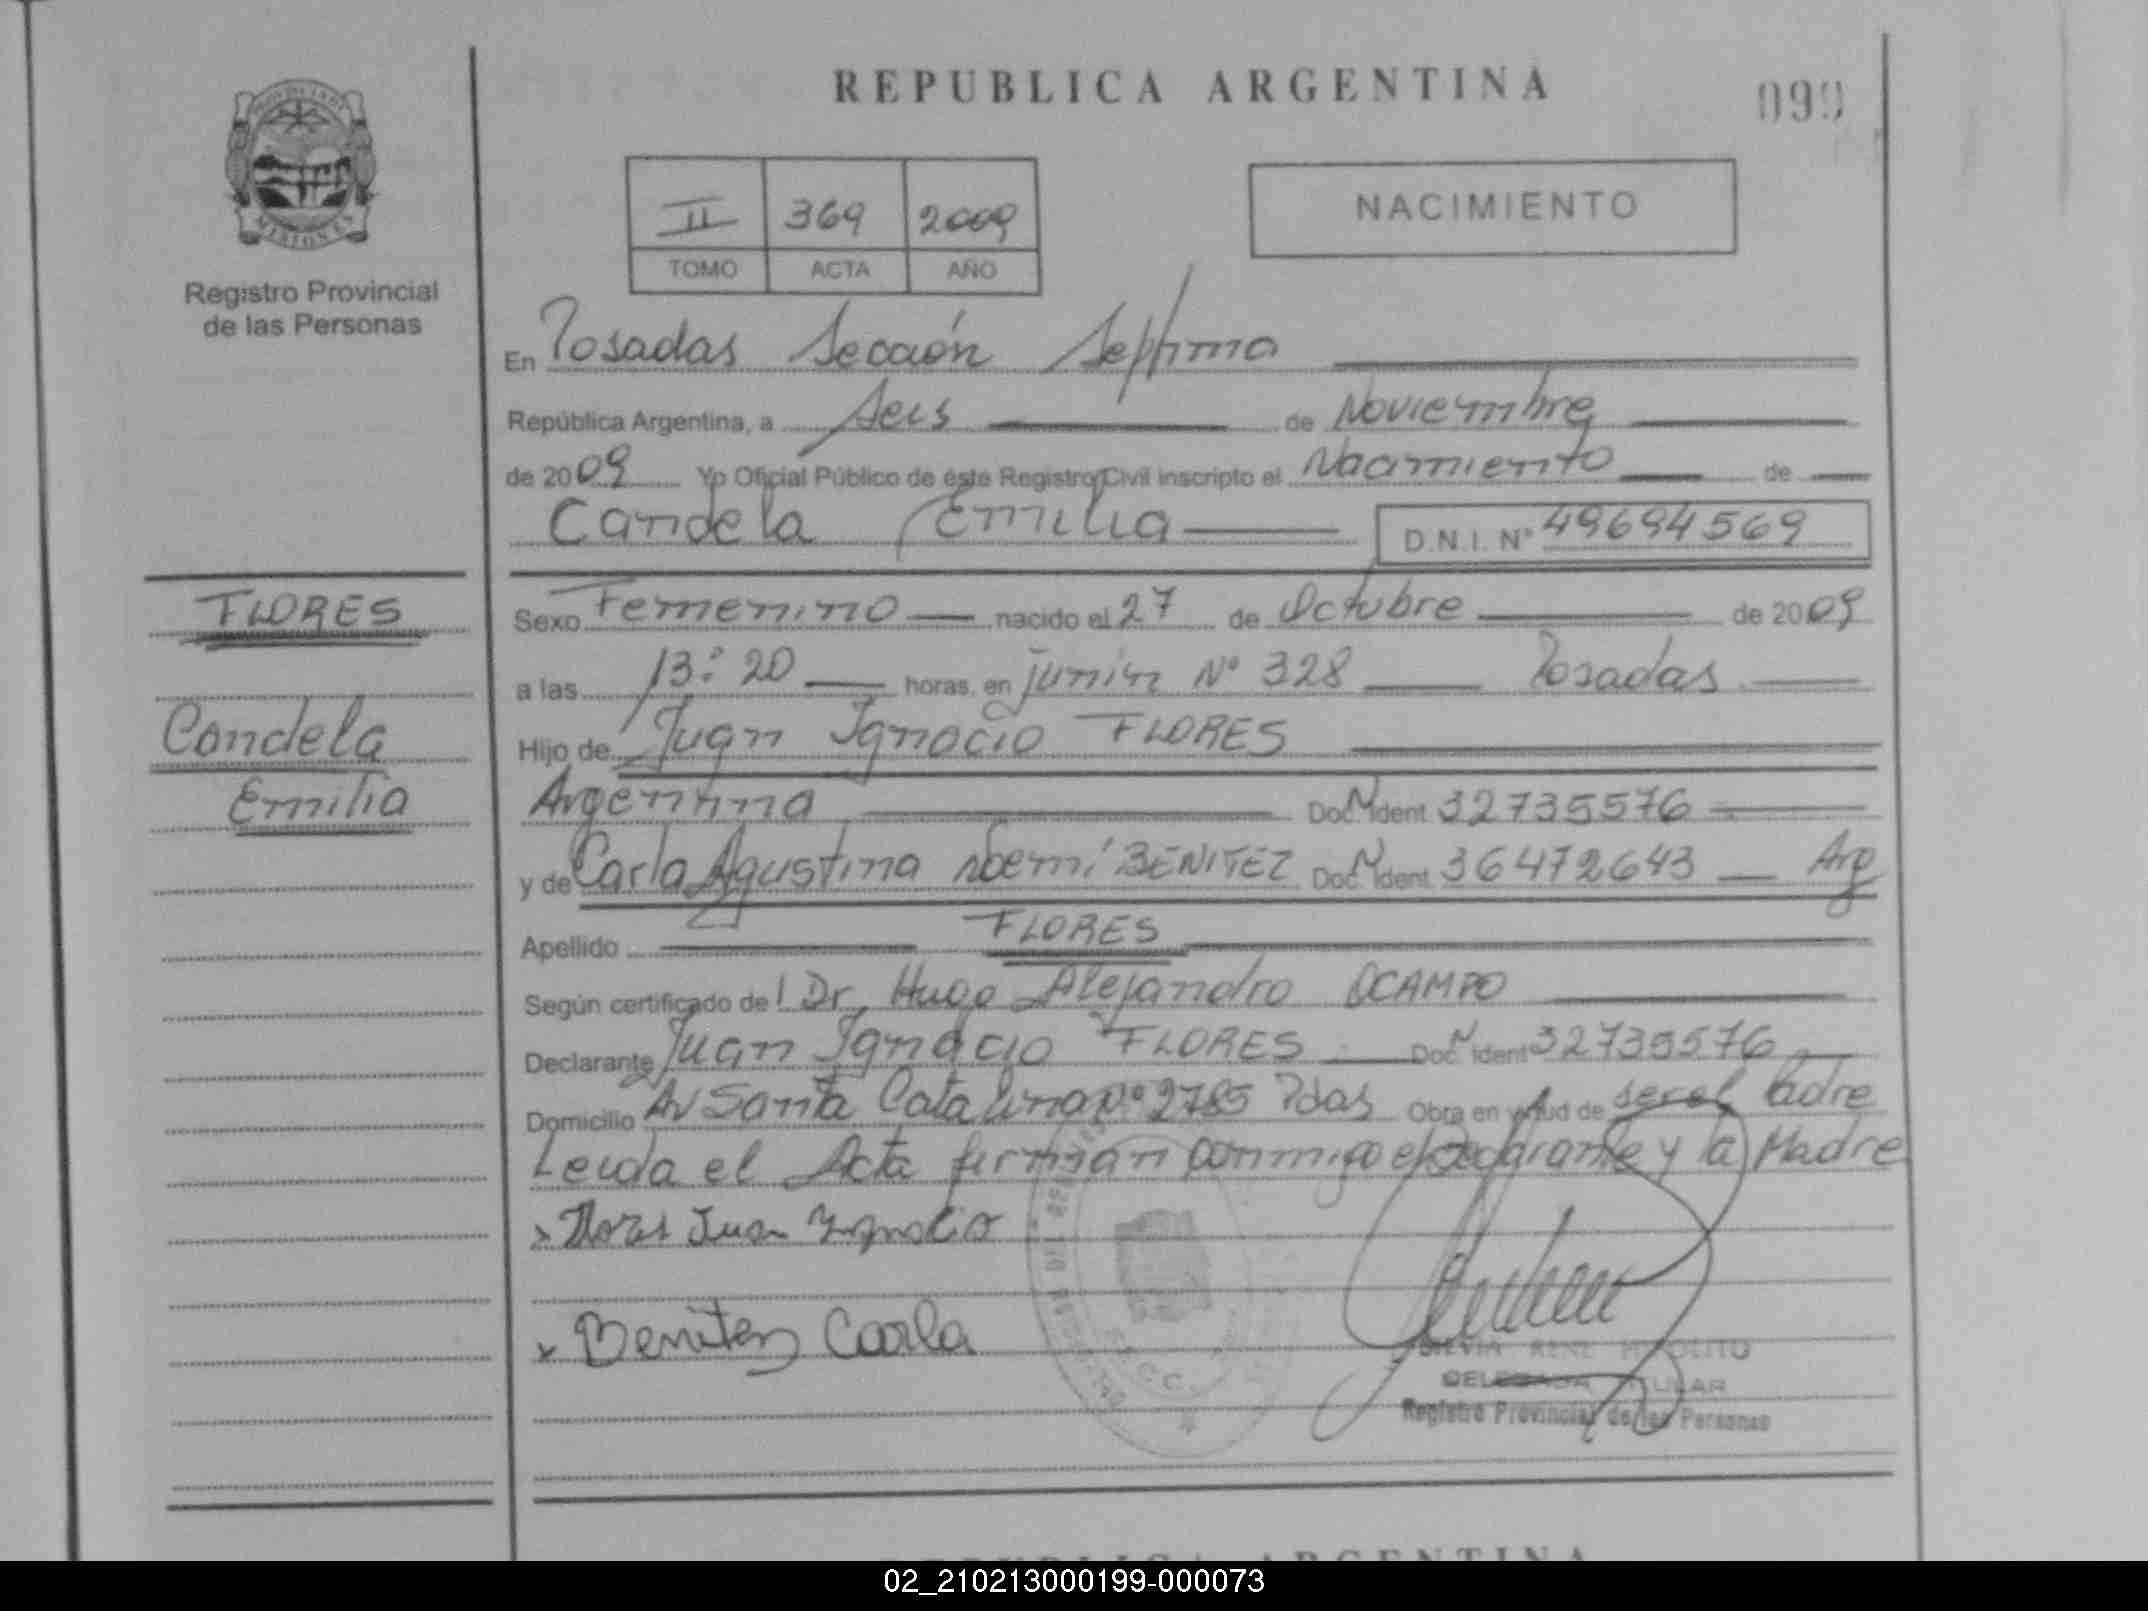 REPUBLICA ARGENTINA
099
PROVINCIA DE
MISIONES
Registro Provincial
de las Personas
II 369 2009
TOMO ACTA AÑO
NACIMIENTO
En Posadas Sección Septima
República Argentina, a Seis de Noviembre
de 2009 Yo Oficial Público de éste Registro Civil inscripto el Nacimiento de
Candela Emilia D.N.I. Nº 49694569
FLORES
Candela
Emilia
Sexo Femenino nacido el 27 de Octubre de 2009
a las 13:20 horas, en junín Nº 328 Posadas
Hijo de Juan Ignacio FLORES
Argentina Doc. N Ident 32735576
y de Carla Agustina Noemí BENITEZ Doc. N Ident 36472643 Arg
Apellido FLORES
Según certificado del Dr. Hugo Alejandro OCAMPO
Declarante Juan Ignacio FLORES Doc. N Ident 32735576
Domicilio Av Santa Catalina Nº 2785 Pdas Obra en virtud de ser el Padre
Leida el Acta firman conmigo el Declarante y la Madre
x Flores Juan Ignacio
x Benitez Carla
SILVIA RENE HIPOLITO
DELEGADA TITULAR
Registro Provincial de las Personas
REPUBLICA ARGENTINA
02_210213000199-000073